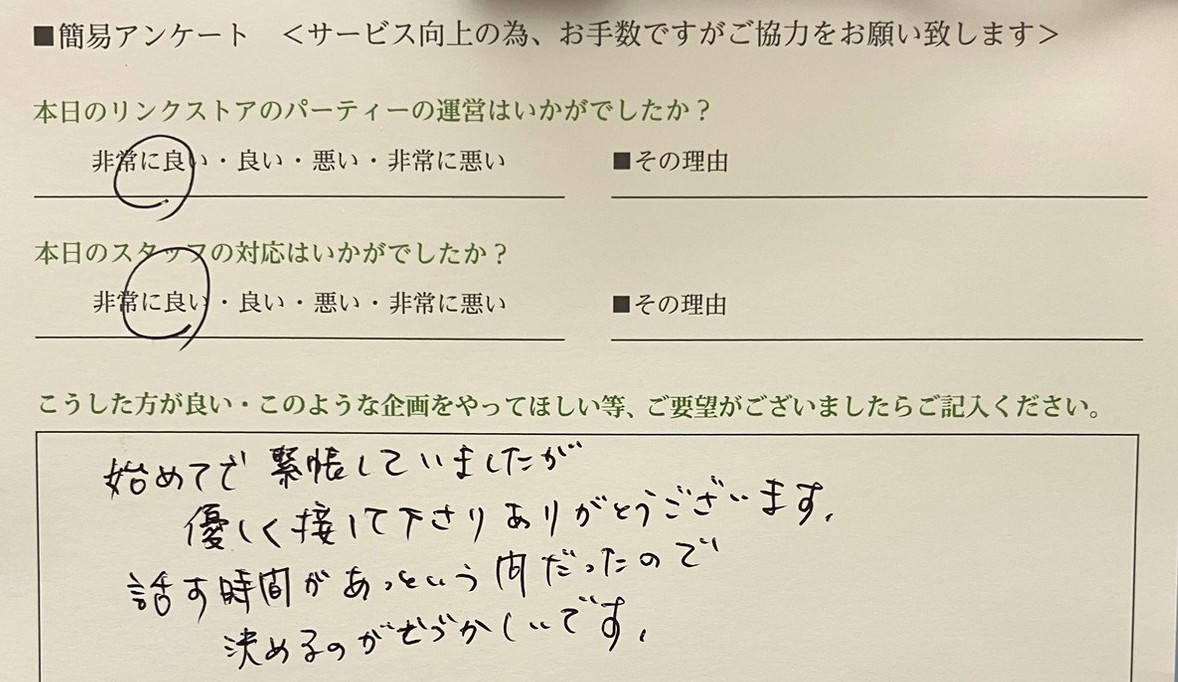 ■簡易アンケート ＜サービス向上の為、お手数ですがご協力をお願い致します＞
本日のリンクストアのパーティーの運営はいかがでしたか？
非常に良い・良い・悪い・非常に悪い ■その理由
本日のスタッフの対応はいかがでしたか？
非常に良い・良い・悪い・非常に悪い ■その理由
こうした方が良い・このような企画をやってほしい等、ご要望がございましたらご記入ください。
始めてで緊帳していましたが
優しく接して下さりありがとうございます。
話す時間があっという間だったので
決めるのがむづかしいです。